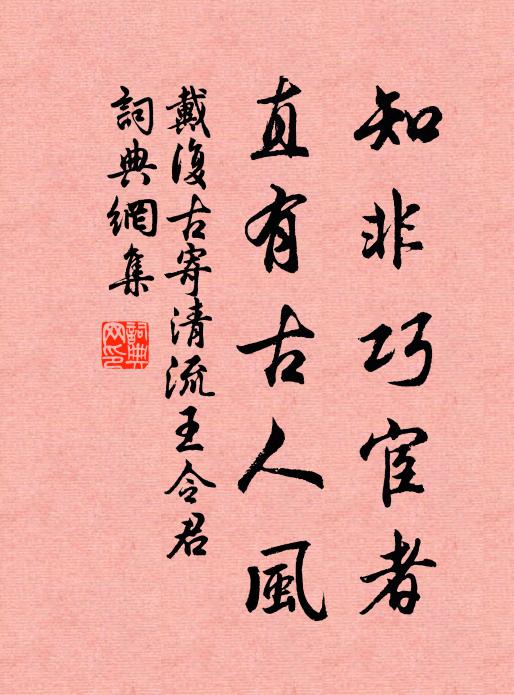 知非巧宦者
直有古人風
戴復古寄清流王令君
詞典網集
詞典
网印